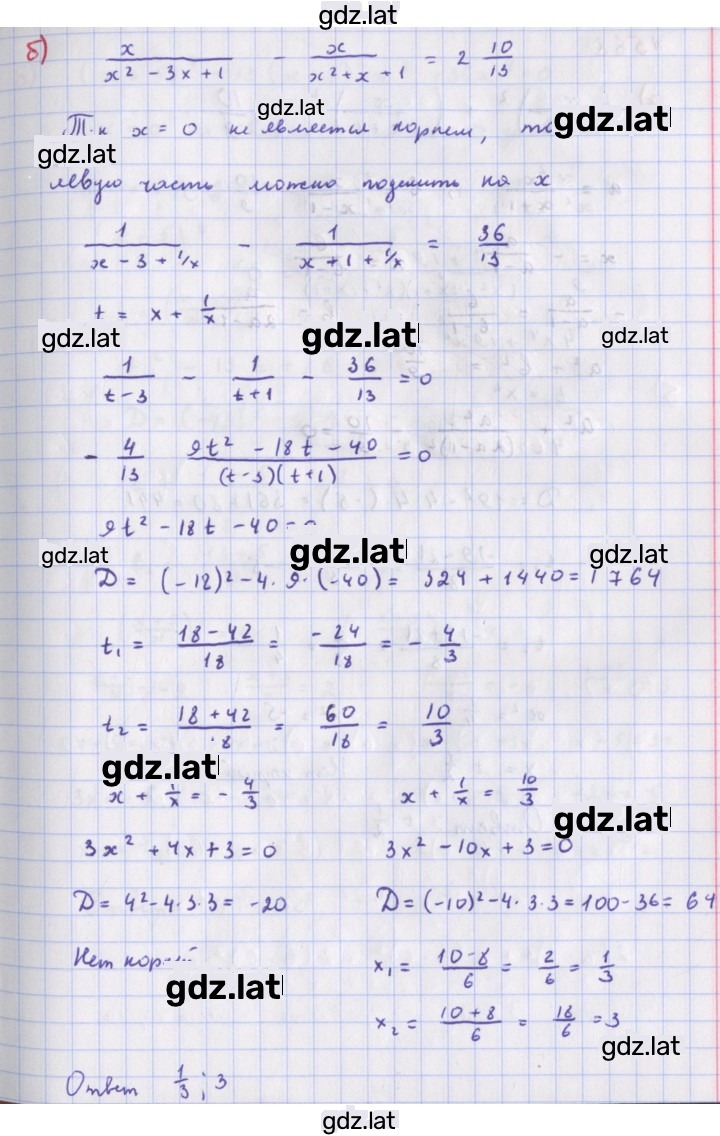 gdz.latl
б) x/(x² - 3x + 1) - x/(x² + x + 1) = 2 10/13
gdz.latl
Т.к x = 0 не является корнем, то
gdz.latl
gdz.latl
левую часть можно поделить на x
1/(x - 3 + 1/x) - 1/(x + 1 + 1/x) = 36/13
t = x + 1/x
gdz.latl
gdz.latl
gdz.latl
1/(t-3) - 1/(t+1) - 36/13 = 0
- 4/13 (9t² - 18t - 40)/((t-3)(t+1)) = 0
9t² - 18t - 40
gdz.latl
gdz.latl
gdz.latl
D = (-12)² - 4·9·(-40) = 324 + 1440 = 1764
t₁ = (18-42)/18 = -24/18 = - 4/3
t₂ = (18+42)/18 = 60/18 = 10/3
gdz.latl
x + 1/x = - 4/3 x + 1/x = 10/3
gdz.latl
3x² + 4x + 3 = 0 3x² - 10x + 3 = 0
D = 4² - 4·3·3 = -20 D = (-10)² - 4·3·3 = 100 - 36 = 64
Нет x₁ = (10-8)/6 = 2/6 = 1/3
gdz.latl
x₂ = (10+8)/6 = 18/6 = 3
gdz.latl
Ответ 1/3 ; 3
gdz.latl